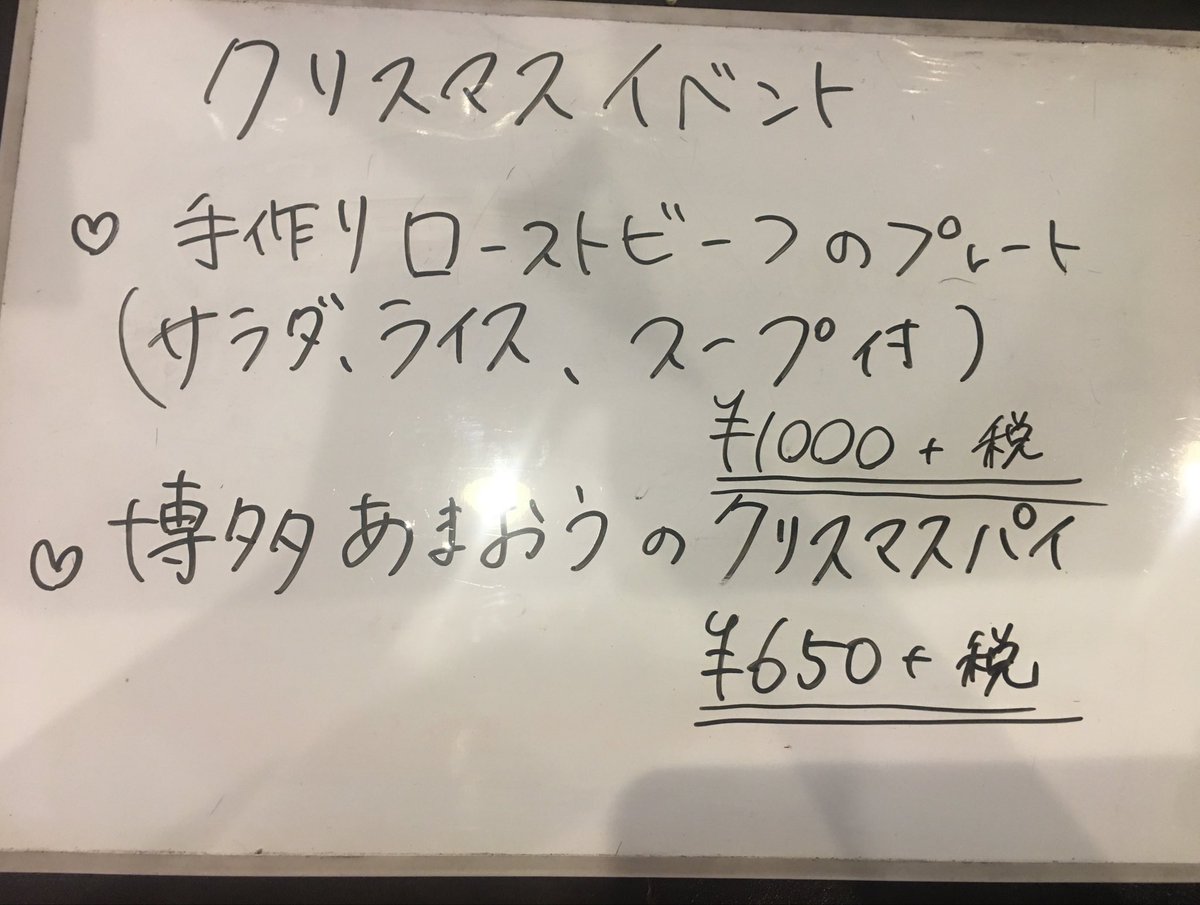 クリスマスイベント
♡ 手作りローストビーフのプレート
(サラダ、ライス、スープ付)
¥1000+税
♡ 博多あまおうのクリスマスパイ
¥650+税